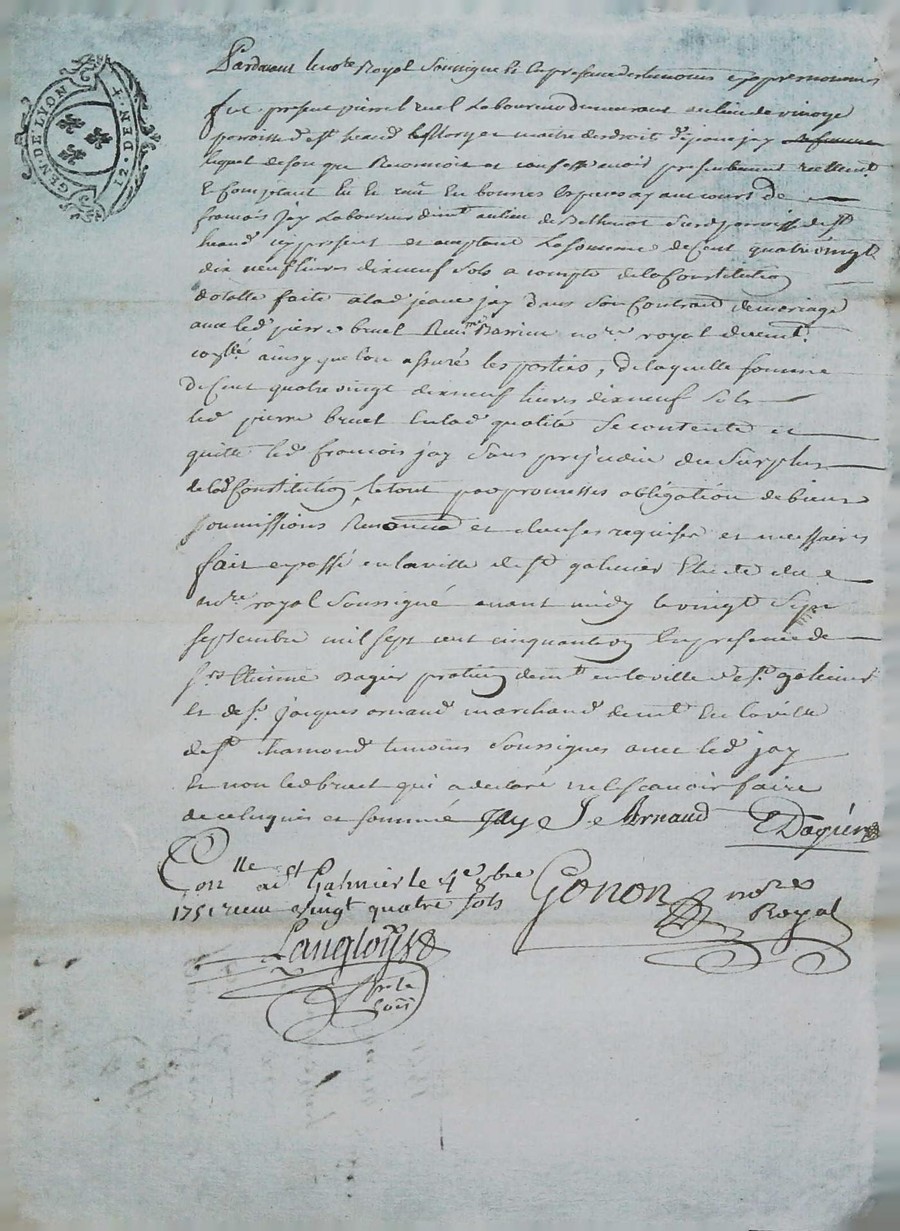 GEN. DE LYON 12 DEN. +
Pardevant le no.re Royal Soussigné Et En presence des temoins cy apres nommés
fut present pierre bruel Laboureur demeurant au lieu de
paroisse de S.t heand maitre des droits de jeanne jay sa femme
lequel de son gré Reconnoit et confesse avoir presentement reellement
Et Comptant Eu Et receu En bonnes Especes ayant cours de
francois Jay Laboureur dem.t au lieu de Susd. parroisse de S.t
heand icy present et acceptant La Somme de Cent quatrevingt
dix neuf livres dix neuf Sols a compte de la Constitution
dotalle faite a lad. jeanne jay dans Son Contrat de mariage
avec led. pierre bruel Receu par no.re royal
ainsy que l'on assuré les parties, de laquelle somme
de Cent quatre vingt dix neuf livres dix neuf Sols
led. pierre bruel En lad. qualité Se contente et
quitte led. francois jay Sans prejudice du Surplus
de lad. Constitution, le tout par promesses obligation de biens
Soumissions Renonciā.on et clauses requises et necessaires
fait et passé en la ville de S.t galmier Etude du
no.re royal Soussigné avant midy le vingt Sept
septembre mil sept cent cinquante un En presence de
S.r Etienne Dagier praticien dem.t en la ville de S.t galmier
et de S.r Jacques arnaud marchand dem.t En la ville
de S.t chamond temoins Soussignes avec led. jay
Et non led. bruel qui a declaré ne le Scavoir faire
de ce Enquis et Sommé Jay J. Arnaud E Dagier
Con.lle a S.t Galmier le 4.e 8bre
1751 receu vingt quatre Sols
Gonon no.re
Royal
Langloys